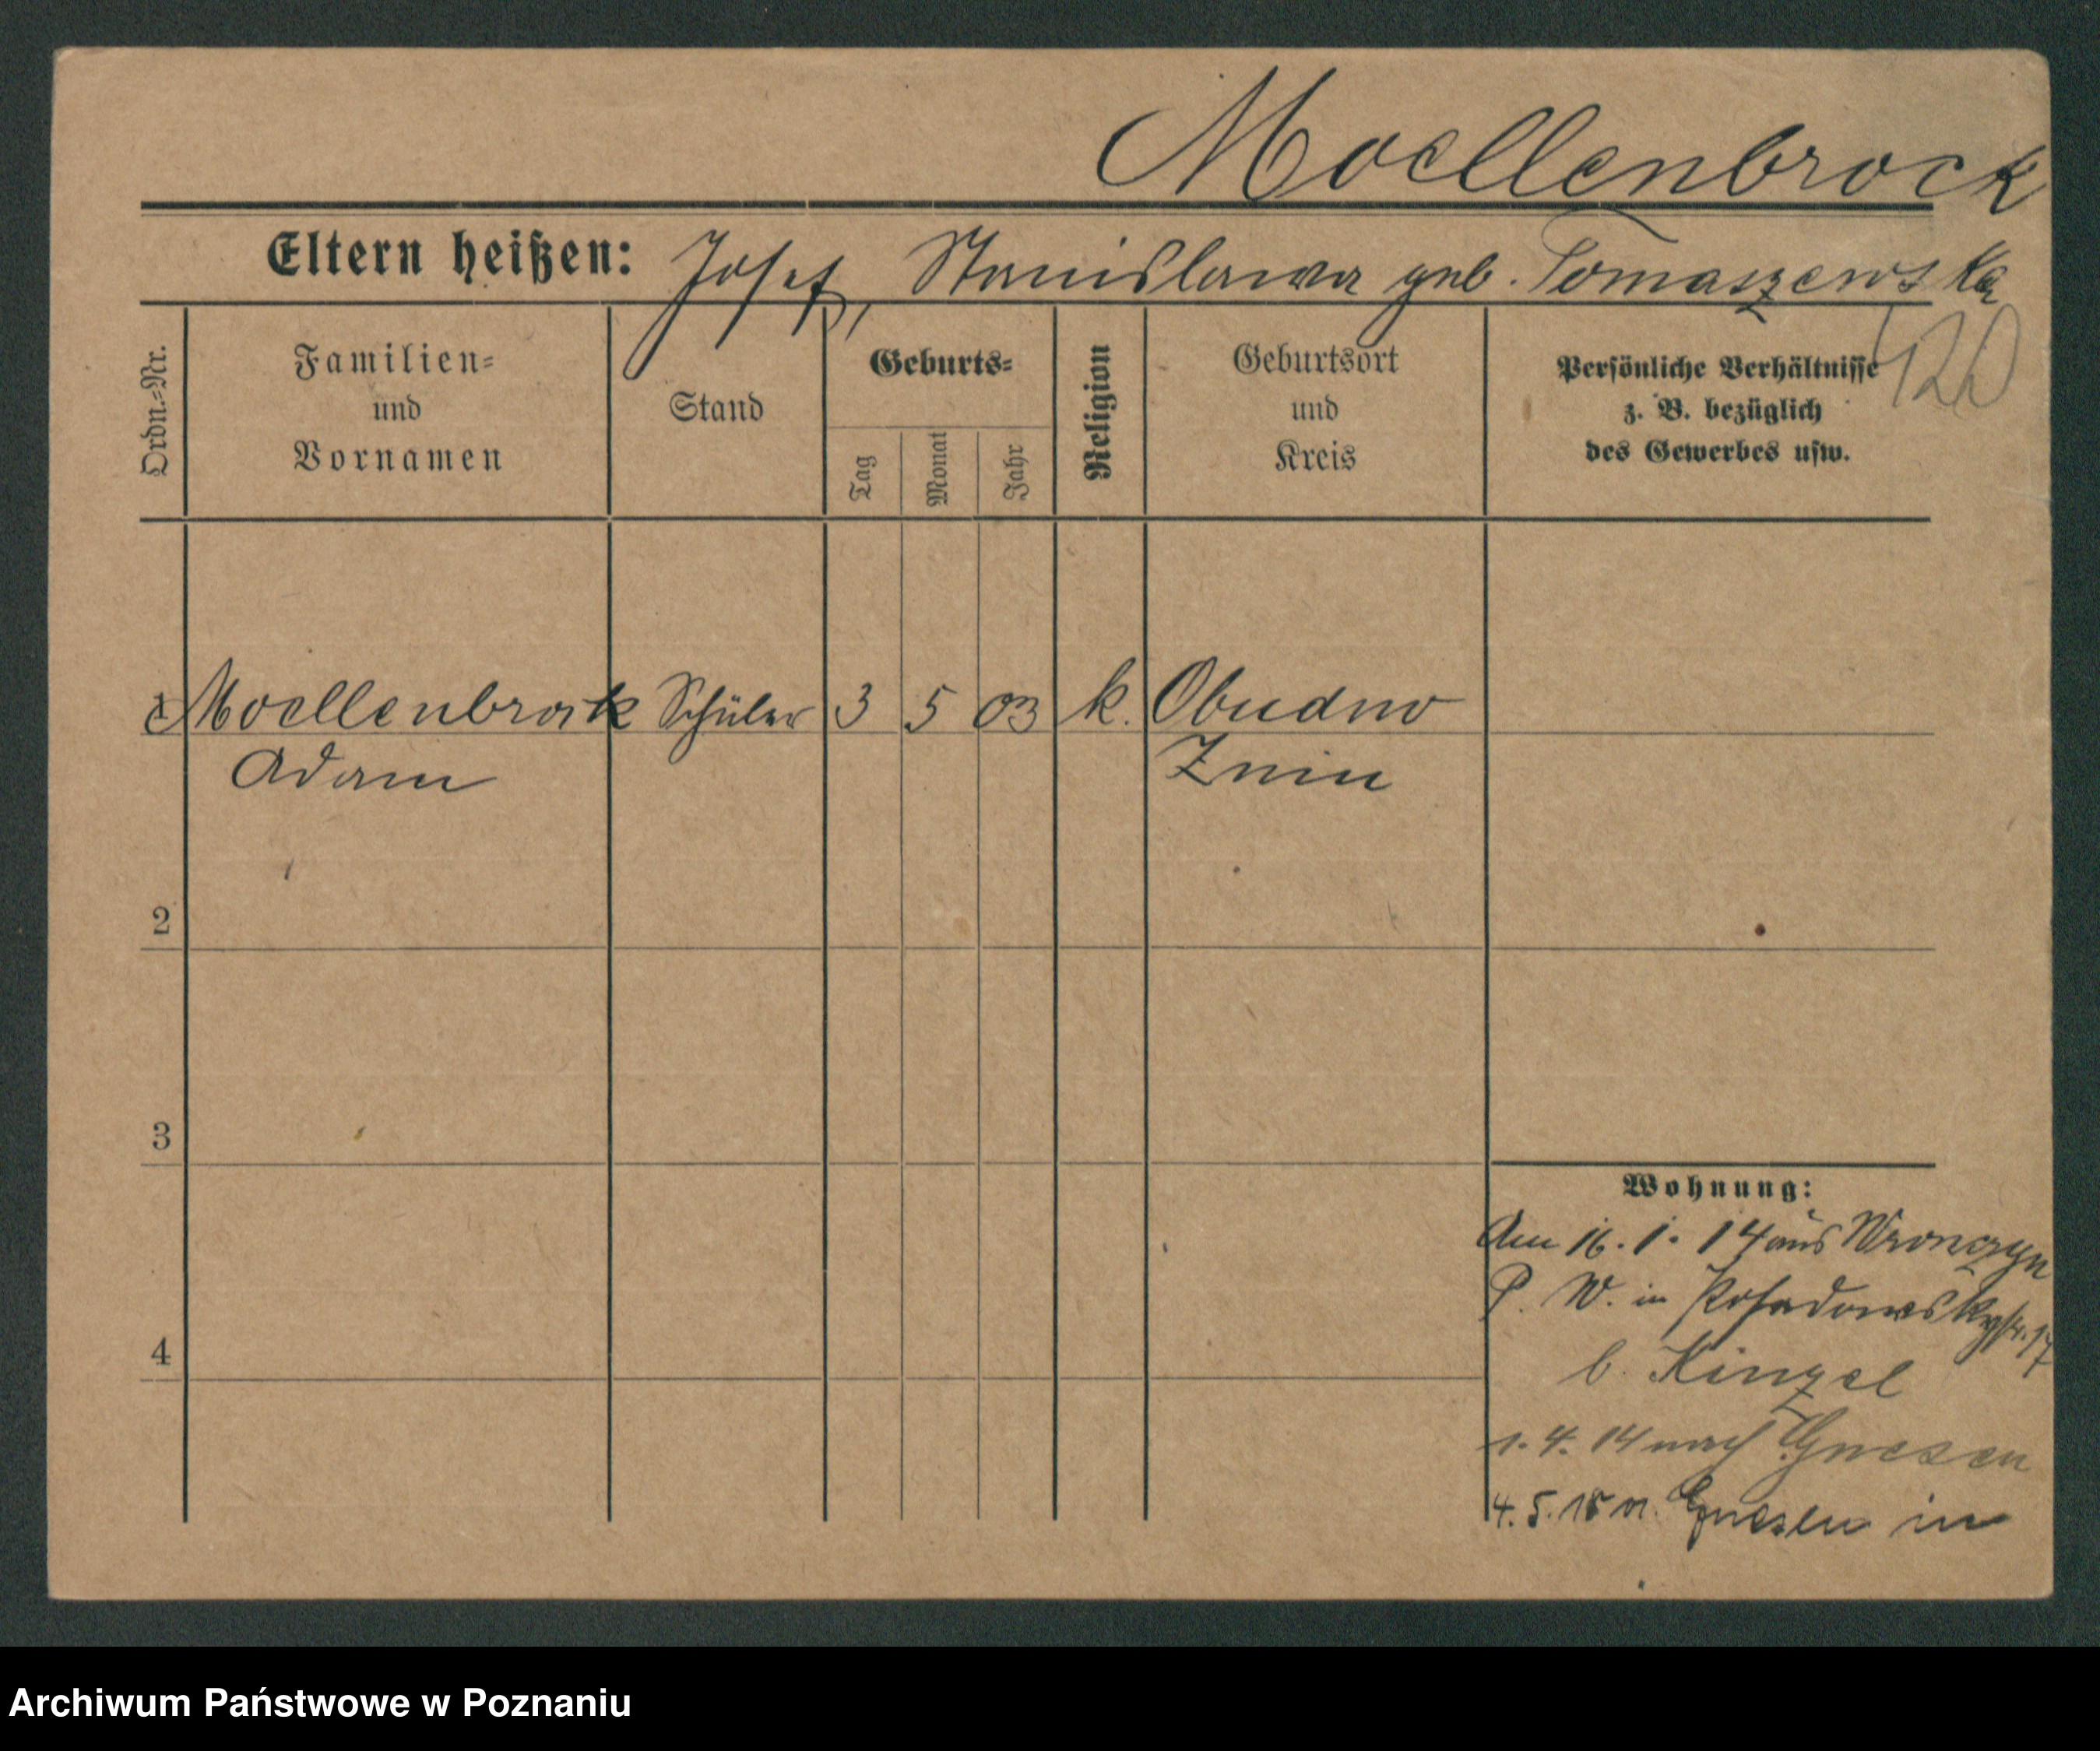 Moellenbrock
Eltern heißen: Josef, Stanislawa geb. Tomaszewska
420
Ordn.=Nr.
Familien=
und
Vornamen
Stand
Geburts=
Tag
Monat
Jahr
Religion
Geburtsort
und
Kreis
Persönliche Verhältnisse
z. B. bezüglich
des Gewerbes usw.
1 Moellenbrock Schüler 3 5 03 k. Obudno
Adam Znin
2
3
4
Wohnung:
Am 16. 1. 14 aus Wronczyn
P. W. in Posadowskystr. 17
b. Kinzel
1. 4. 14 nach Gnesen
4. 5. 15 n. Gnesen in
Archiwum Państwowe w Poznaniu